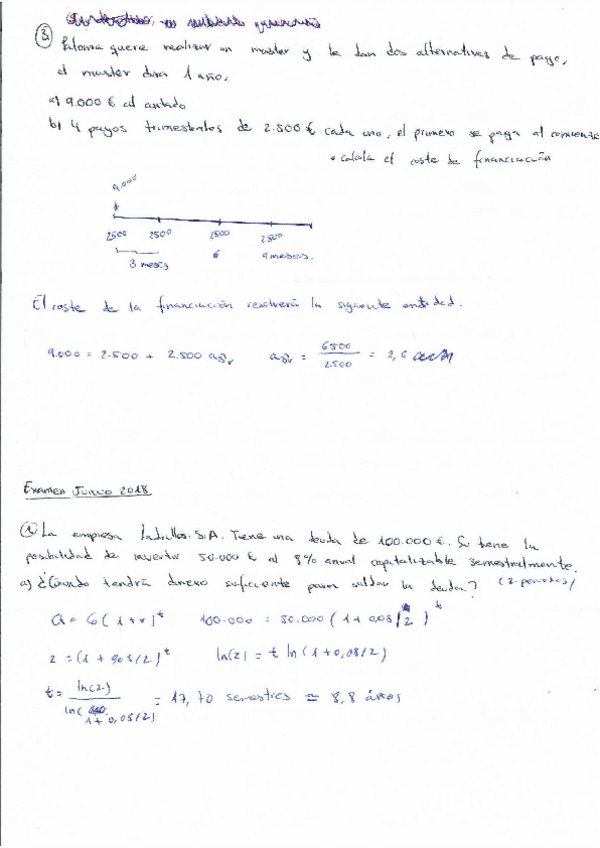 3. Paloma quiere realizar un master y le dan dos alternativas de pago,
el master dura 1 año.
a) 9.000 € al contado
b) 4 pagos trimestrales de 2.500 € cada uno, el primero se paga al comienzo
• calcula el coste de financiación
9.000
2500 2500 2500 2500
3 meses 6 9 meses.
El coste de la financiación resolverá la siguiente entidad.
9.000 = 2.500 + 2.500 a3┐r a3┐r = 6500/2500 = 2,6
Examen Junio 2018
1. La empresa Ladrillos S.A. Tiene una deuda de 100.000 €. Si tiene la
posibilidad de invertir 50.000 € al 8% anual capitalizable semestralmente.
a) ¿Cuándo tendrá dinero suficiente para saldar la deuda? (2 puntos)
100.000 = 50.000 (1 + 0,08/2)^t
2 = (1 + 0,08/2)^t ln(2) = t ln (1 + 0,08/2)
t = ln(2) / ln(1 + 0,08/2) = 17,70 semestres ≃ 8,8 años